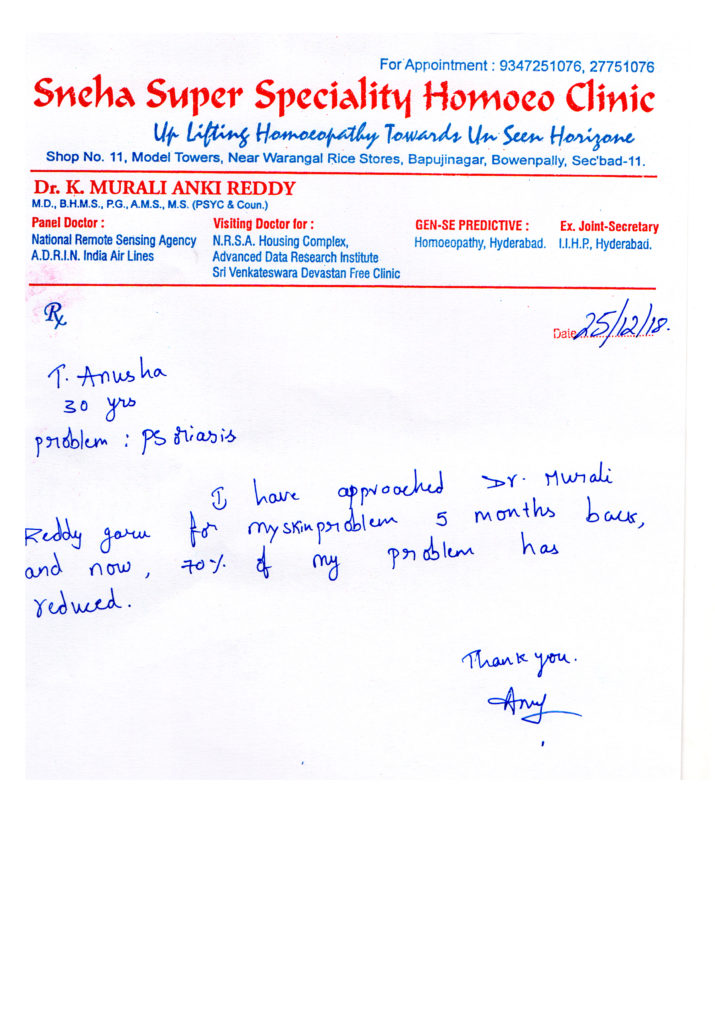 For Appointment : 9347251076, 27751076
Sneha Super Speciality Homoeo Clinic
Up Lifting Homoeopathy Towards Un Seen Horizone
Shop No. 11, Model Towers, Near Warangal Rice Stores, Bapujinagar, Bowenpally, Sec'bad-11.
Dr. K. MURALI ANKI REDDY
M.D., B.H.M.S., P.G., A.M.S., M.S. (PSYC & Coun.)
Panel Doctor : Visiting Doctor for : GEN-SE PREDICTIVE : Ex. Joint-Secretary
National Remote Sensing Agency N.R.S.A. Housing Complex, Homoeopathy, Hyderabad. I.I.H.P., Hyderabad.
A.D.R.I.N. India Air Lines Advanced Data Research Institute
Sri Venkateswara Devastan Free Clinic
Rx
Date 25/12/18.
T. Anusha
30 yrs
problem : PSoriasis
I have approached Dr. Murali
Reddy garu for my skin problem 5 months back,
and now, 70% of my problem has
reduced.
Thank you.